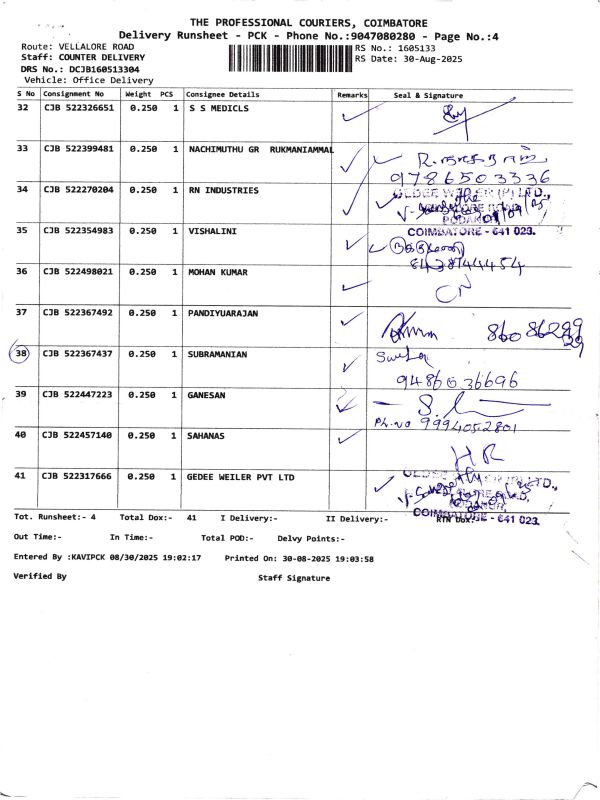 THE PROFESSIONAL COURIERS, COIMBATORE
Delivery Runsheet - PCK - Phone No.:9047080280 - Page No.:4
Route: VELLALORE ROAD
RS No.: 1605133
Staff: COUNTER DELIVERY
RS Date: 30-Aug-2025
DRS No.: DCJB160513304
Vehicle: Office Delivery
S No Consignment No Weight PCS Consignee Details Remarks Seal & Signature
32 CJB 522326651 0.250 1 S S MEDICLS
33 CJB 522399481 0.250 1 NACHIMUTHU GR RUKMANIAMMAL
9786503336
34 CJB 522270204 0.250 1 RN INDUSTRIES
GEDEE WEILER (P) LTD.,
COIMBATORE - 641 023.
35 CJB 522354983 0.250 1 VISHALINI
36 CJB 522498021 0.250 1 MOHAN KUMAR
CN
37 CJB 522367492 0.250 1 PANDIYUARAJAN
38 CJB 522367437 0.250 1 SUBRAMANIAN
9486036696
39 CJB 522447223 0.250 1 GANESAN
Ph.no 9994052801
40 CJB 522457140 0.250 1 SAHANAS
HR
41 CJB 522317666 0.250 1 GEDEE WEILER PVT LTD
COIMBATORE - 641 023.
Tot. Runsheet:- 4 Total Dox:- 41 I Delivery:- II Delivery:- RTN Dox:-
Out Time:- In Time:- Total POD:- Delvy Points:-
Entered By :KAVIPCK 08/30/2025 19:02:17 Printed On: 30-08-2025 19:03:58
Verified By Staff Signature